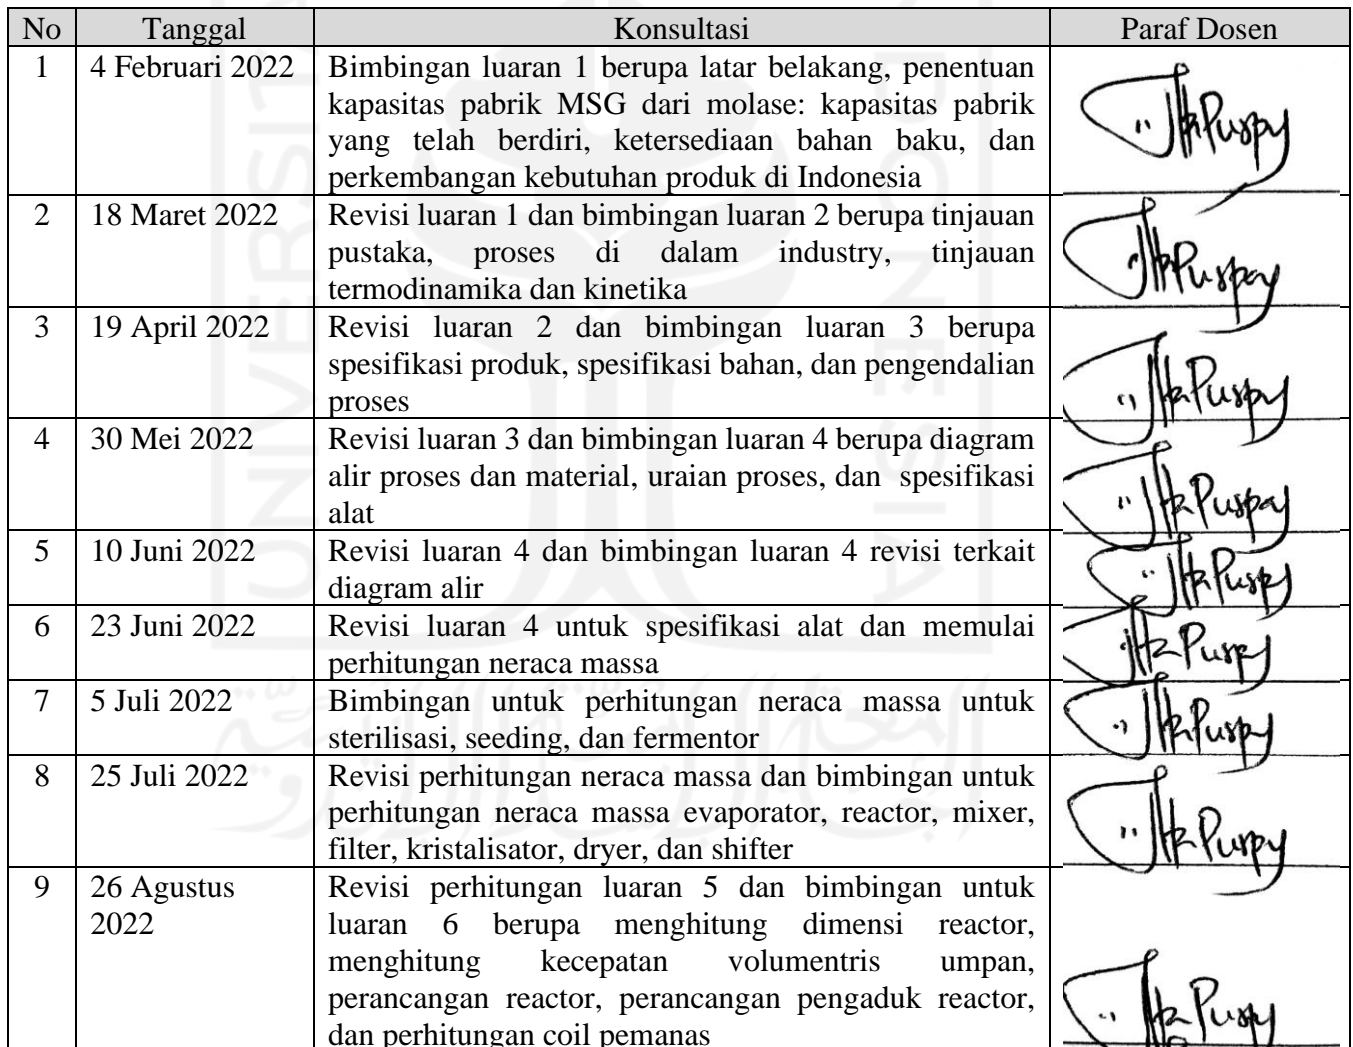 No Tanggal Konsultasi Paraf Dosen
1 4 Februari 2022 Bimbingan luaran 1 berupa latar belakang, penentuan
kapasitas pabrik MSG dari molase: kapasitas pabrik
yang telah berdiri, ketersediaan bahan baku, dan
perkembangan kebutuhan produk di Indonesia
2 18 Maret 2022 Revisi luaran 1 dan bimbingan luaran 2 berupa tinjauan
pustaka, proses di dalam industry, tinjauan
termodinamika dan kinetika
3 19 April 2022 Revisi luaran 2 dan bimbingan luaran 3 berupa
spesifikasi produk, spesifikasi bahan, dan pengendalian
proses
4 30 Mei 2022 Revisi luaran 3 dan bimbingan luaran 4 berupa diagram
alir proses dan material, uraian proses, dan spesifikasi
alat
5 10 Juni 2022 Revisi luaran 4 dan bimbingan luaran 4 revisi terkait
diagram alir
6 23 Juni 2022 Revisi luaran 4 untuk spesifikasi alat dan memulai
perhitungan neraca massa
7 5 Juli 2022 Bimbingan untuk perhitungan neraca massa untuk
sterilisasi, seeding, dan fermentor
8 25 Juli 2022 Revisi perhitungan neraca massa dan bimbingan untuk
perhitungan neraca massa evaporator, reactor, mixer,
filter, kristalisator, dryer, dan shifter
9 26 Agustus Revisi perhitungan luaran 5 dan bimbingan untuk
2022 luaran 6 berupa menghitung dimensi reactor,
menghitung kecepatan volumentris umpan,
perancangan reactor, perancangan pengaduk reactor,
dan perhitungan coil pemanas